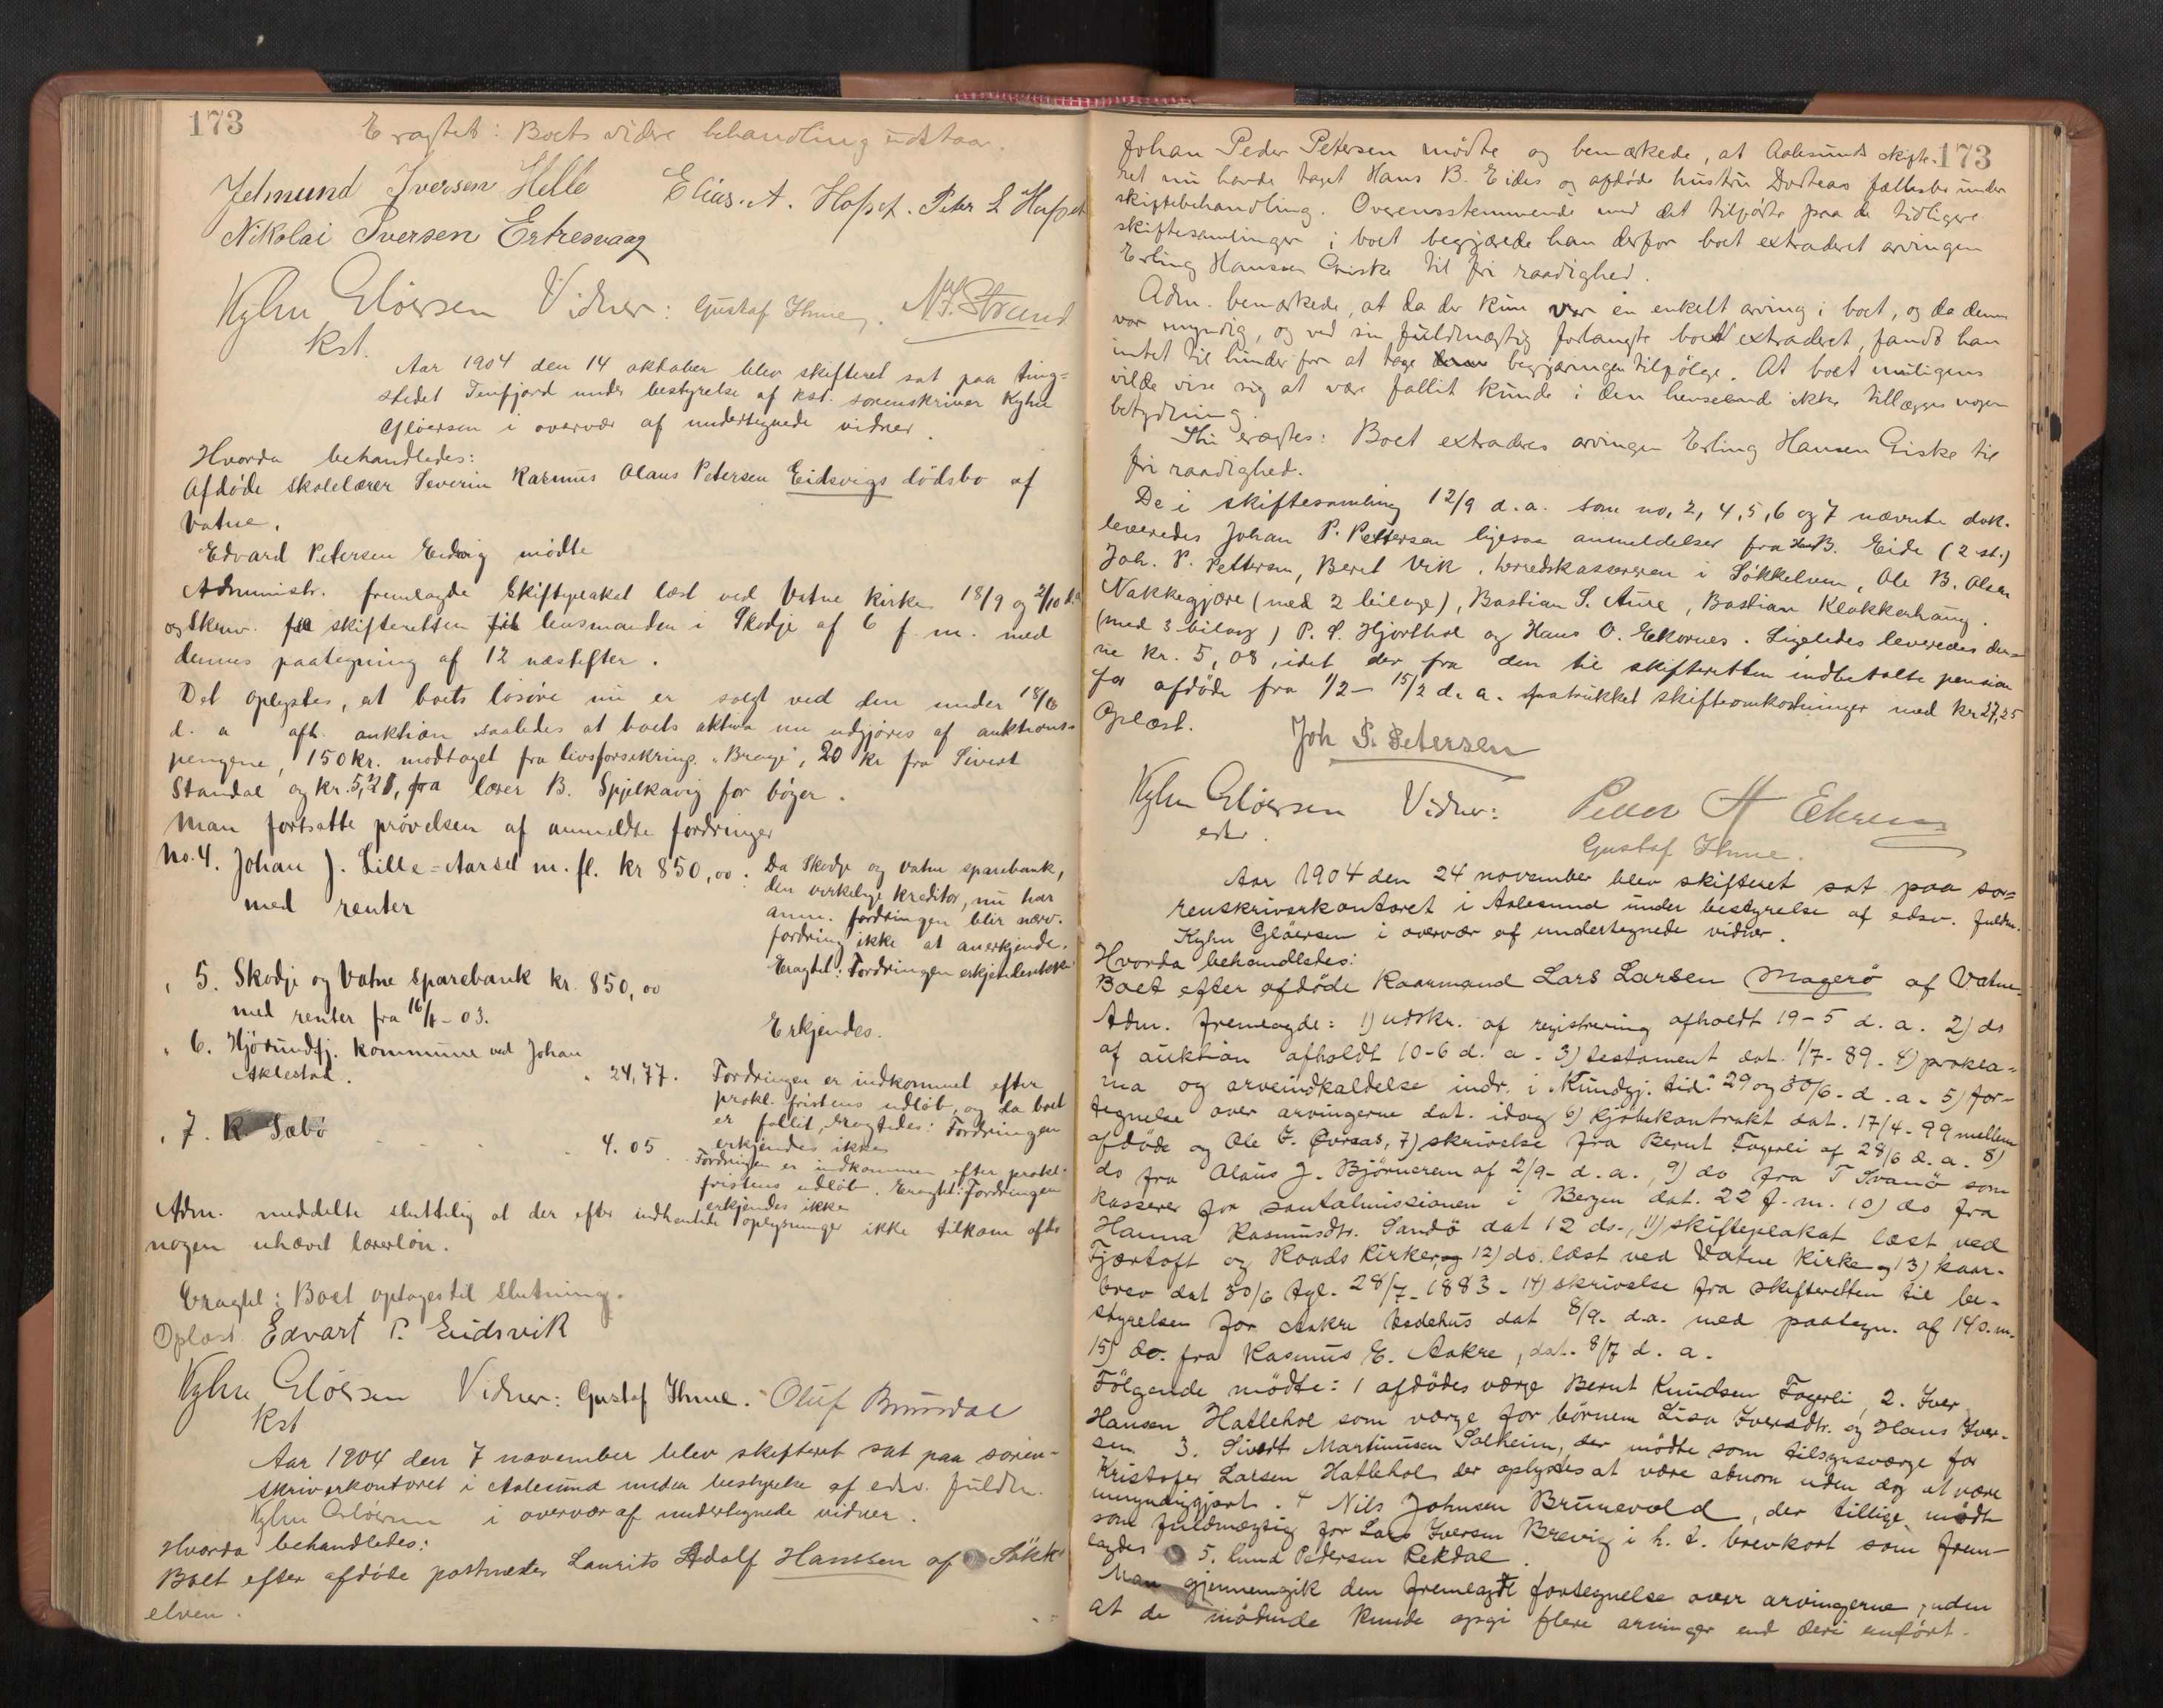 173
Eragtet: Boets vidre behandling udstaar.
Jetmund Iversen Helle Elias. A. Hofset. Peter L Hofset
Nikolai Iversen Ertresvaag
Kyhn Gløersen Vidner: Gustaf Thne. N. Strand
kst.
Aar 1904 den 14 oktober blev skifteret sat paa ting-
stedet Tenfjord under bestyrelse af kst. sorenskriver Kyhn
Gløersen i overvær af undertegnede vidner.
Hvorda behandledes:
Afdöde skolelærer Severin Rasmus Olaus Petersen Eidsvigs dödsbo af
Vatne.
Edvard Petersen Eidsvig mödte
Administr. fremlagde Skifteplakat læst ved Vatne kirke 18/9 og 2/10 d.a
og skriv. fra skifteretten til lensmanden i Skodje af 6 f. m. med
dennes paategning af 12 næstefter.
Det oplystes, at boets lösöre nu er solgt ved den under 18/6
d. a afh. auktion saaledes at boets aktiva nu udgjöres af auktions-
pengene, 150 kr. modtaget fra livsforsikring. "Brage", 20 kr fra Sivert
Standal og kr. 5,21, fra lærer B. Spjelkavig for böger.
Man fortsatte prövelsen af anmeldte fordringer
No. 4. Johan J. Lille-Aarset m. fl. kr 850,00.
med renter
Da Skodje og Vatne sparebank,
den virkelige kreditor, nu har
anm. fordringen blir nærv.
fordring ikke at anerkjende.
Eragtet: Fordringen erkjendes ikke
" 5. Skodje og Vatne sparebank kr. 850,00
med renter fra 16/1-03.
Erkjendes.
" 6. Hjörundfj. kommune ved Johan
Aklestad. " 24,77.
Fordringen er indkommet efter
prokl. fristens udlöb, og da boet
er fallit, eragtedes: Fordringen
erkjendes ikke
" 7. R Sæbö - - - 4.05
Fordringen er indkommen efter prokl.
fristens udlöb. Eragtet: Fordringen
erkjendes ikke
Adm. meddelte sluttelig at der efter indhentede oplysninger ikke tilkom afdöde
nogen uhævet lærerlön.
Eragtet: Boet optages til slutning.
Oplæst. Edvart P. Eidsvik
Kyhn Gløersen Vidner: Gustaf Thne. Oluf Brunsdal
kst
Aar 1904 den 7 november blev skifteret sat paa soren-
skriverkontoret i Aalesund under bestyrelse af edsv. fuldm.
Kyhn Gløersen i overvær af undertegnede vidner.
Hvorda behandledes:
Boet efter afdöde postmester Laurits Adolf Hanssen af Søkk-
elven.
173
Johan Peder Petersen mødte og bemærkede, at Aalesunds skifte-
ret nu havde taget Hans B. Eides og afdøde hustru Dorteas fællesbo under
skiftebehandling. Overensstemmende med det tilførte paa de tidligere
skiftesamlinger i boet begjærede han derfor boet extraderet arvingen
Erling Hanssen Giske til fri raadighed.
Adm. bemærkede, at da der kun var en enkelt arving i boet, og da denne
var myndig, og ved sin fuldmægtig forlangte boet extraderet, fandt han
intet til hinder for at tage begjæringen tilfølge. At boet muligens
vilde vise sig at være fallit kunde i den henseende ikke tillægges nogen
betydning.
Thi eragtes: Boet extraderes arvingen Erling Hansen Giske til
fri raadighed.
De i skiftesamling 12/9 d. a. som no. 2, 4, 5, 6 og 7 nævnte dok.
leveredes Johan P. Pettersen ligesaa anmeldelser fra Hans B. Eide (2 st.)
Joh. P. Pettersen, Beret Vik, herredskassereren i Søkkelven, Ole B. Olsen
Nakkegjære (med 2 bilage), Bastian S. Aure, Bastian Klokkerhaug.
(med 3 bilag) P. S. Hjorthol og Hans O. Ekornes. Ligeledes leveredes den-
ne kr. 5,08, idet der fra den til skifteretten indbetalte pension
for afdöde fra 1/2 - 15/2 d. a. fratrukket skifteomkostninger med kr 27,25
Oplæst.
Joh P. Petersen
Kyhn Gløersen Vidner: Peder A Ekrem
edsv. Gustaf Thne.
Aar 1904 den 24 november blev skifteret sat paa so-
renskriverkontoret i Aalesund under bestyrelse af edsv. fuldm.
Kyhn Gløersen i overvær af undertegnede vidner.
Hvorda behandledes:
Boet efter afdöde Kaarmand Lars Larsen Magerö af Vatne.
Adm. fremlagde: 1) udskr. af registrering afholdt 19-5 d. a. 2) do
af auktion afholdt 10-6 d. a. 3) testament dat. 1/7-89. 4) prokla-
ma og arveindkaldelse indr. i "Kundgj. tid." 29 og 30/6- d. a. 5) for-
tegnelse over arvingerne dat. idag 6) kjöbekontrakt dat. 17/4-99 mellem
afdöde og Ole J. Övrsas, 7) skrivelse fra Bernt Fagerli af 28/6 d. a. 8)
do fra Olaus J. Björnerem af 2/9- d. a., 9) do fra T Svanö som
kasserer for santalmissionen i Bergen dat. 22 f. m. 10) do fra
Hanna Rasmusdtr. Sandö dat 12 ds., 11) skifteplakat læst ved
Fjærtoft og Roads kirker, og 12) do. læst ved Vatne kirke og 13) kaar-
brev dat 30/6 tgl. 28/7-1883. 14) skrivelse fra skifteretten til be-
styrelsen for Aakre bedehus dat 8/9- d.a. med paategn. af 14 s. m.
15) do. fra Rasmus E. Aakre, dat. 8/7 d. a.
Fölgende mödte: 1 afdödes værge Bernt Knudsen Fagerli, 2. Iver
Hansen Hatlehol som værge for börnene Lisa Iversdtr. og Hans Iver-
sen 3. Sivert Martinusen Solheim, der mödte som tilsynsværge for
Kristofer Larsen Hatlehol, der oplystes at være abnorm uden dog at være
umyndiggjort. 4 Nils Johnsen Brunevold, der tillige mödte
som fuldmægtig for Lars Iversen Brevig i h. t. brevkort som frem-
lagdes 5. Knud Pedersen Rekdal.
Man gjennemgik den fremlagte fortegnelse over arvingerne, uden
at de mödende kunde opgi flere arvinger end deri anfört.